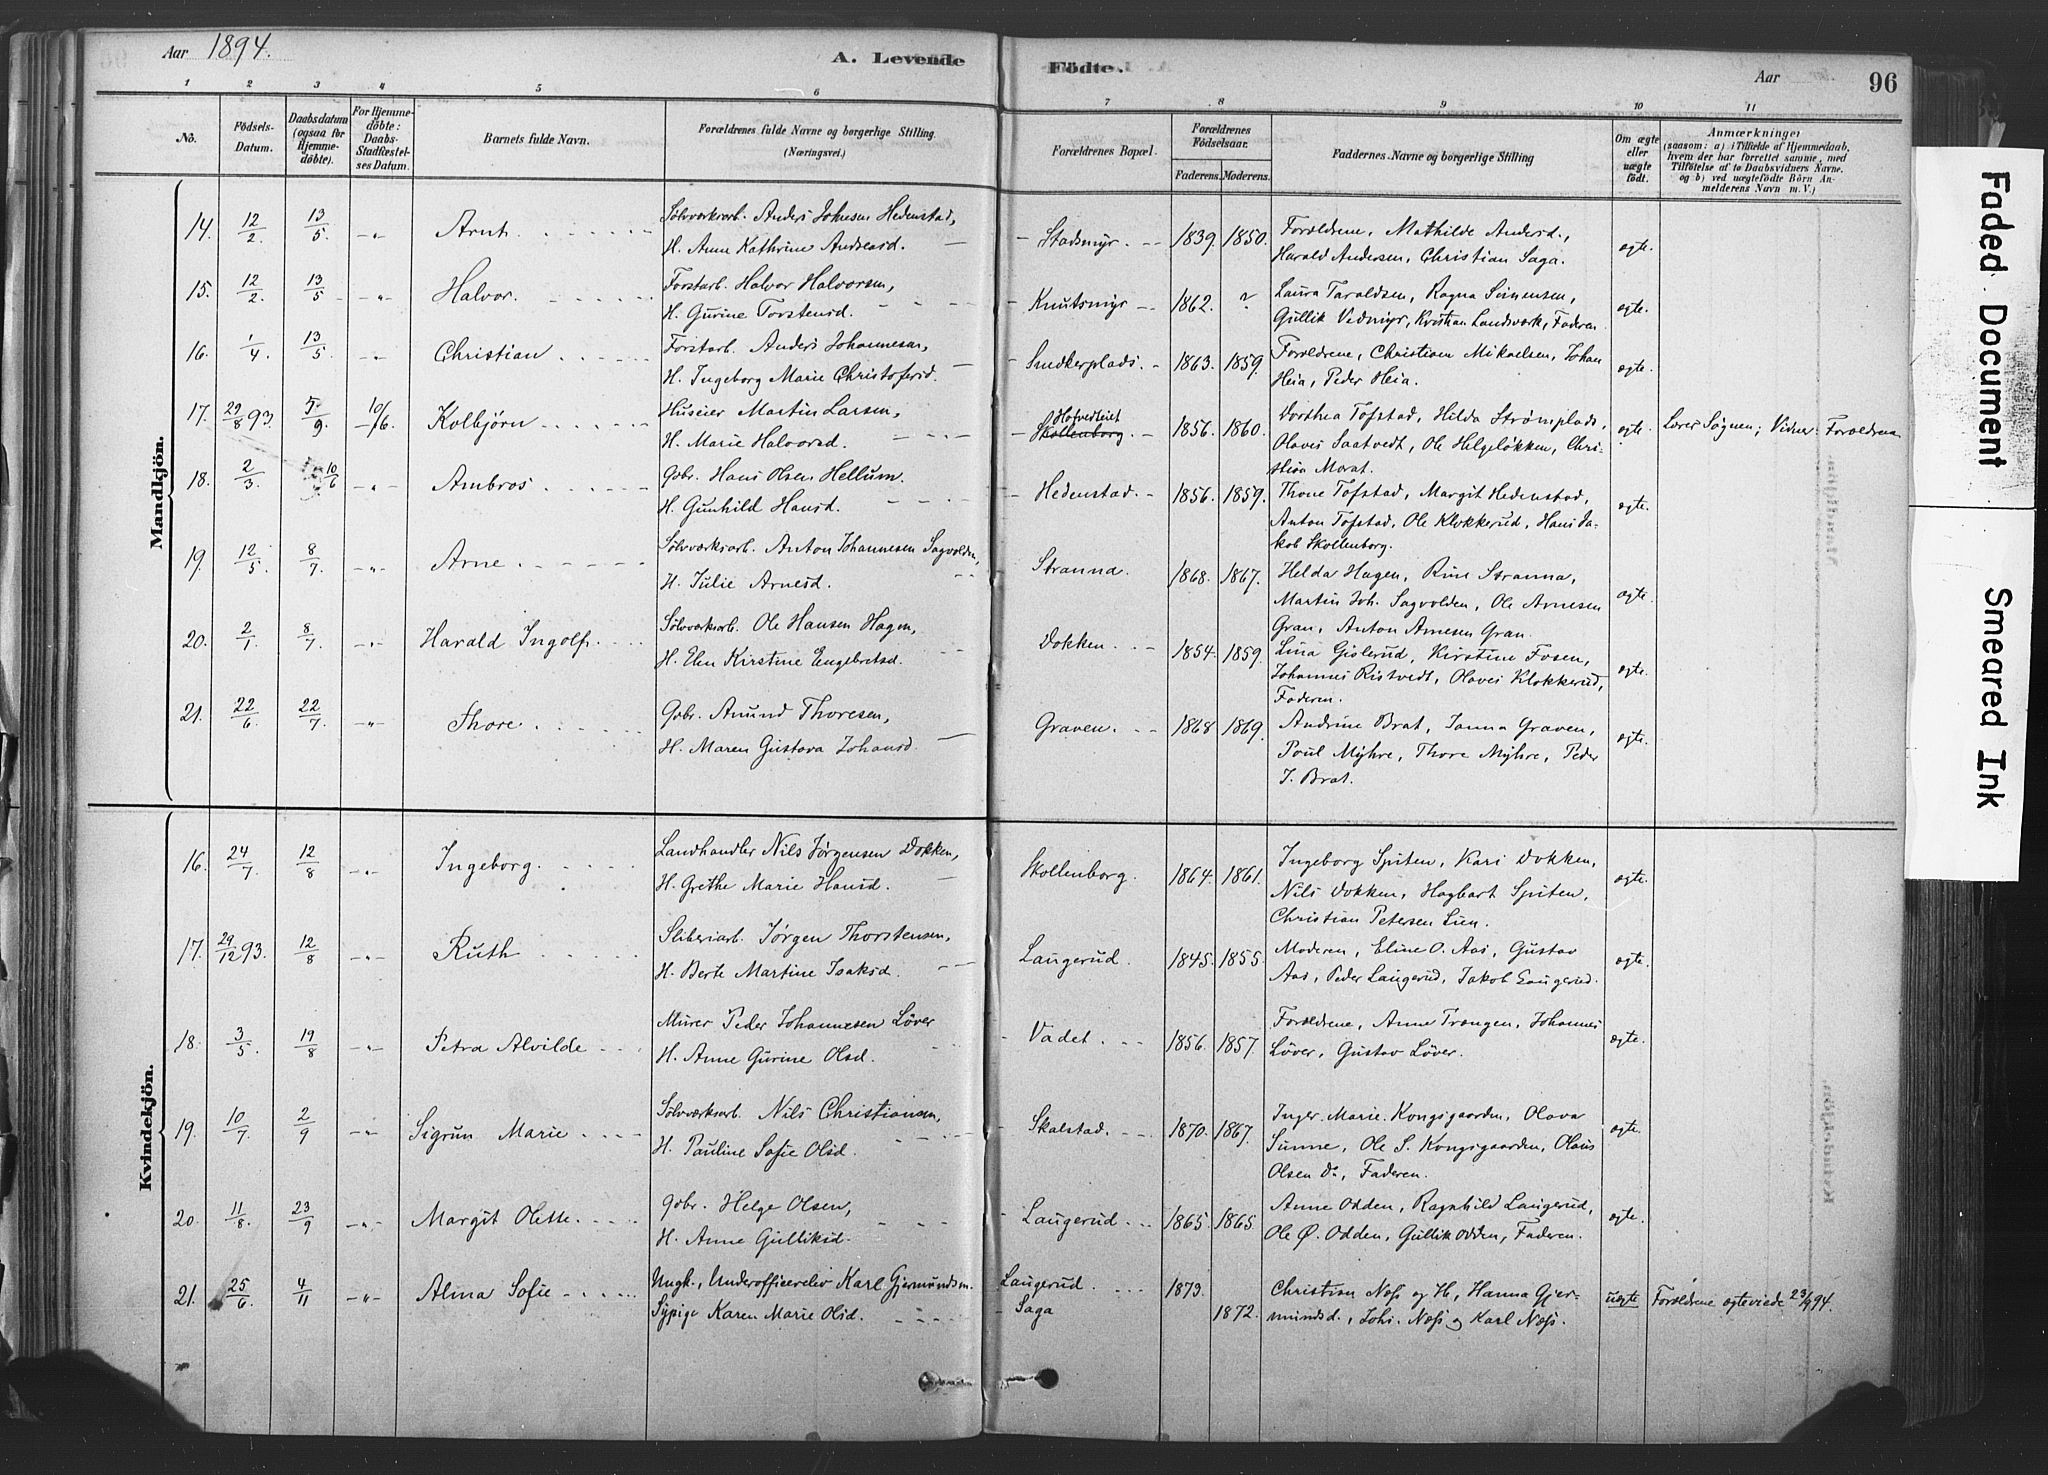 Aar 1894.
A. Levende Födte.
Aar
96
1 2 3 4 5 6 7 8 9 10 11
No.
Födsels-Datum.
Daabsdatum (ogsaa for Hjemme-döbte).
For Hjemme-döbte: Daabs-Stadfæstel-ses Datum.
Barnets fulde Navn.
Forældrenes fulde Navne og borgerlige Stilling. (Næringsvei.)
Forældrenes Bopæl.
Forældrenes Födselsaar. Faderens. Moderens.
Faddernes Navne og borgerlige Stilling
Om ægte eller uægte födt.
Anmærkninger (saasom: a) i Tilfælde af Hjemmedaab, hvem der har forrettet samme, med Tilföielse af to Daabsvidners Navne. og b) ved uægtefödte Börn Anmelderens Navn m. V.)
Mandkjön.
14. 12/2. 13/5. -"- Arnt Sølvværksarb. Anders Johnsen Hedenstad, Stadsmyr. 1839. 1850. Forældrene, Mathilde Andersd.,
H. Anne Kathrine Andreasd. Harald Andersen, Christian Saga. ægte.
15. 12/2. 13/5 -"- Halvor. Forstarb. Halvor Halvorsen, Knutsmyr 1862. Laura Taraldsen, Ragna Simensen,
H. Gurine Torstensd. Gullik Vedmyr, Kristian Landsværk, Faderen. ægte.
16. 1/4 13/5 -"- Christian Forstarb. Anders Johannesen, Snedkerplads. 1863. 1859. Forældrene, Christian Mikaelsen, Johan
H. Ingeborg Marie Christofersd. Heia, Peder Heia. ægte.
17. 29/8 93. 5/9. 10/6. Kolbjörn Huseier Martin Larsen, Skollenborg. 1856. 1860. Dorthea Tofstad, Hilda Strømplads,
H. Marie Halvorsd. Olaves Saatvedt, Ole Helgeløkken, Chri- ægte. Lærer Søgnen; Vidner: Forældrene
stian Morat.
18. 2/3. 10/6 -"- Ambros Gbr. Hans Olsen Hellum. Hedenstad. 1856. 1859. Thone Tofstad, Margit Hedenstad,
H. Gunhild Hansd. Anton Tofstad, Ole Klokkerud, Hans Ja- ægte.
kob Skollenborg.
19. 12/5. 8/7 -"- Arne Sølvværksarb. Anton Johannesen Sagvolden, Stranna. 1868. 1867. Helda Hagen, Rine Stranna,
H. Julie Arnesd. Martin Joh. Sagvolden, Ole Arnesen ægte.
Gran, Anton Arnesen Gran.
20. 2/1. 8/7. -"- Harald Ingolf. Sølvværksarb. Ole Hansen Hagen, Dokken. 1854. 1859. Lina Gislerud, Kirstine Fosen,
H. Elen Kirstine Engebretsd. Johannes Ristvedt, Olaves Klokkerud, ægte.
Faderen.
21. 22/6 22/7. -"- Thore Gbr. Amund Thoresen, Graven. 1868 1869. Andrine Brat, Janna Graven,
H. Maren Gustava Johansd. Poul Myhre, Thore Myhre, Peder ægte.
J. Brat.
Kvindekjön.
16. 24/7. 12/8 -"- Ingeborg. Landhandler Nils Jørgensen Dokken, Skollenborg. 1864. 1861. Ingeborg Spiten, Kari Dokken,
H. Grethe Marie Hansd. Nils Dokken, Hagbart Spiten, ægte.
Christian Petersen Lien.
17. 29/12 93. 12/8 -"- Ruth Sliberiarb. Jørgen Thorstensen, Laugerud. 1845. 1855. Moderen, Eline O. Aas, Gustav
H. Berte Martine Isaksd. Aas, Peder Laugerud, Jakob Laugerud. ægte.
18. 3/5. 19/8 -"- Petra Alvilde Murer Peder Johannesen Løver Vadet. 1856. 1857. Forældrene, Anne Trangen, Johannes
H. Anne Gurine Olsd. Løver, Gustav Løver. ægte.
19. 10/7. 2/9 -"- Sigrun Marie Sølvværksarb. Nils Christiansen, Skalstad. 1870. 1867. Inger Marie Kongsgaarden, Olava
H. Pauline Sofie Olsd. Sunne, Ole S. Kongsgaarden, Olaus ægte.
Olsen Do., Faderen.
20. 11/8. 23/9 -"- Margit Olette. Gbr. Helge Olsen, Laugerud. 1865. 1865. Anne Odden, Ragnhild Laugerud,
H. Anne Gulliksd. Ole Ø. Odden, Gullik Odden, Faderen. ægte.
21. 25/6. 4/11 -"- Alma Sofie Ungk., Underofficerelev Karl Gjermundsen. Laugerud. 1873. Christian Næss og H., Hanna Gjer-
Sypige Karen Marie Olsd. Saga 1872. mundsd., Johs. Næss og Karl Næss. uægte Forældrene ægteviede 23/9 94.
Faded Document
Smeared Ink